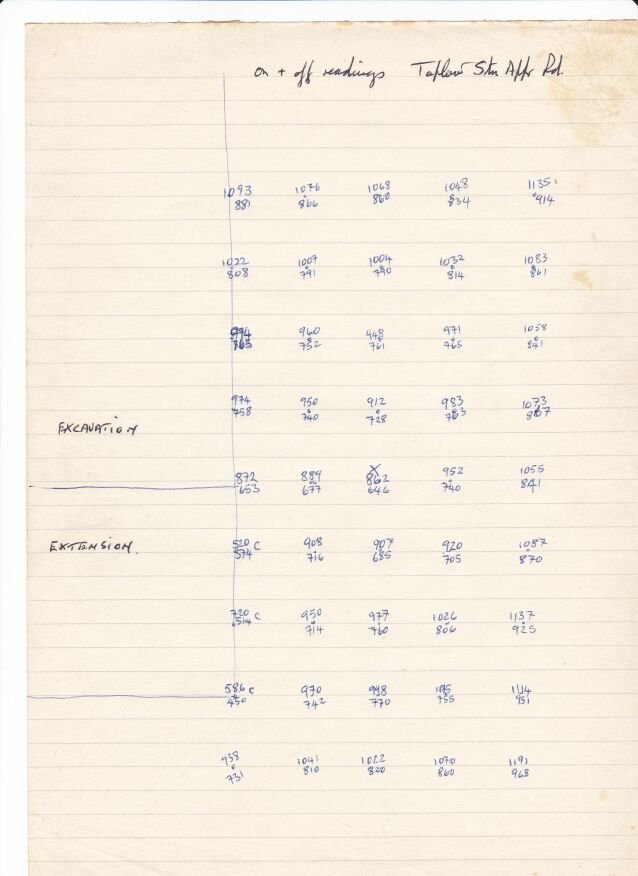 on + off readings Taplow Stn Appr Rd.
1093 1076 1068 1048 1135
881 866 860 834 914
1022 1007 1004 1032 1083
808 791 790 814 861
960 948 971 1058
752 761 765 841
974 950 912 983 1073
758 740 728 763 867
EXCAVATION
872 889 862 952 1055
653 677 646 740 841
EXTENSION.
520 C 908 907 920 1087
574 716 685 705 870
720 C 950 977 1026 1137
514 714 760 806 925
586 C 970 998
450 742 770 755 951
938 1041 1022 1070 1191
731 810 820 860 968